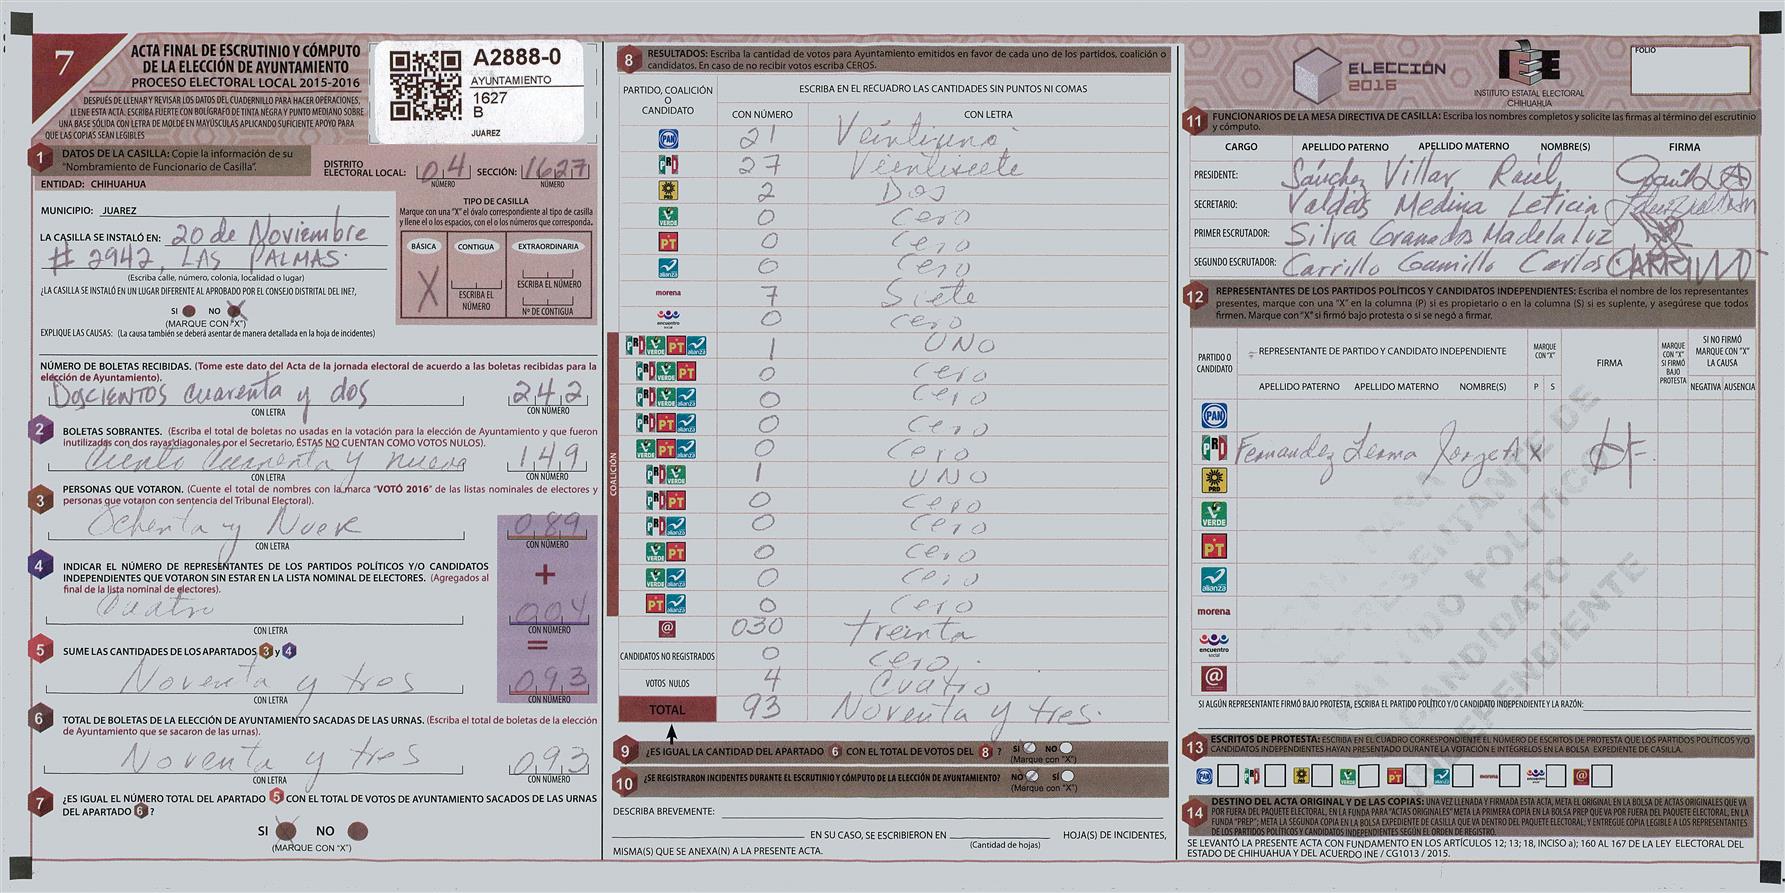 7
ACTA FINAL DE ESCRUTINIO Y CÓMPUTO
DE LA ELECCIÓN DE AYUNTAMIENTO
PROCESO ELECTORAL LOCAL 2015-2016
DESPUÉS DE LLENAR Y REVISAR LOS DATOS DEL CUADERNILLO PARA HACER OPERACIONES,
LLENE ESTA ACTA. ESCRIBA FUERTE CON BOLÍGRAFO DE TINTA NEGRA Y PUNTO MEDIANO SOBRE
UNA BASE SÓLIDA CON LETRA DE MOLDE EN MAYÚSCULAS APLICANDO SUFICIENTE APOYO PARA
QUE LAS COPIAS SEAN LEGIBLES
A2888-0
AYUNTAMIENTO
1627
B
JUAREZ
1 DATOS DE LA CASILLA: Copie la información de su
"Nombramiento de Funcionario de Casilla".
DISTRITO ELECTORAL LOCAL: 04 SECCIÓN: 1627
NÚMERO NÚMERO
ENTIDAD: CHIHUAHUA
MUNICIPIO: JUAREZ
LA CASILLA SE INSTALÓ EN: 20 de Noviembre
# 2942, LAS PALMAS.
(Escriba calle, número, colonia, localidad o lugar)
¿LA CASILLA SE INSTALÓ EN UN LUGAR DIFERENTE AL APROBADO POR EL CONSEJO DISTRITAL DEL INE?,
SI NO X
(MARQUE CON "X")
EXPLIQUE LAS CAUSAS: (La causa también se deberá asentar de manera detallada en la hoja de incidentes)
TIPO DE CASILLA
Marque con una "X" el óvalo correspondiente al tipo de casilla
y llene el o los espacios, con el o los números que corresponda.
BÁSICA CONTIGUA EXTRAORDINARIA
X
ESCRIBA EL NÚMERO
ESCRIBA EL NÚMERO
Nº DE CONTIGUA
NÚMERO DE BOLETAS RECIBIDAS. (Tome este dato del Acta de la jornada electoral de acuerdo a las boletas recibidas para la
elección de Ayuntamiento).
Doscientos cuarenta y dos 242
CON LETRA CON NÚMERO
2 BOLETAS SOBRANTES. (Escriba el total de boletas no usadas en la votación para la elección de Ayuntamiento y que fueron
inutilizadas con dos rayas diagonales por el Secretario, ÉSTAS NO CUENTAN COMO VOTOS NULOS).
Ciento Cuarenta y nueve 149
CON LETRA CON NÚMERO
3 PERSONAS QUE VOTARON. (Cuente el total de nombres con la marca "VOTÓ 2016" de las listas nominales de electores y
personas que votaron con sentencia del Tribunal Electoral).
Ochenta y Nueve 089
CON LETRA CON NÚMERO
4 INDICAR EL NÚMERO DE REPRESENTANTES DE LOS PARTIDOS POLÍTICOS Y/O CANDIDATOS
INDEPENDIENTES QUE VOTARON SIN ESTAR EN LA LISTA NOMINAL DE ELECTORES. (Agregados al
final de la lista nominal de electores).
+
Cuatro 004
CON LETRA CON NÚMERO
5 SUME LAS CANTIDADES DE LOS APARTADOS 3 y 4
=
Noventa y tres 093
CON LETRA CON NÚMERO
6 TOTAL DE BOLETAS DE LA ELECCIÓN DE AYUNTAMIENTO SACADAS DE LAS URNAS. (Escriba el total de boletas de la elección
de Ayuntamiento que se sacaron de las urnas).
Noventa y tres 093
CON LETRA CON NÚMERO
7 ¿ES IGUAL EL NÚMERO TOTAL DEL APARTADO 5 CON EL TOTAL DE VOTOS DE AYUNTAMIENTO SACADOS DE LAS URNAS
DEL APARTADO 6 ?
SI X NO
(MARQUE CON "X")
8 RESULTADOS: Escriba la cantidad de votos para Ayuntamiento emitidos en favor de cada uno de los partidos, coalición o
candidatos. En caso de no recibir votos escriba CEROS.
PARTIDO, COALICIÓN O CANDIDATO
ESCRIBA EN EL RECUADRO LAS CANTIDADES SIN PUNTOS NI COMAS
CON NÚMERO CON LETRA
PAN 21 Veintiuno
PRI 27 Vientisiete
PRD 2 Dos
VERDE 0 Cero
PT 0 Cero
alianza 0 Cero
morena 7 Siete
encuentro social 0 Cero
COALICIÓN
PRI VERDE PT alianza 1 UNO
PRI VERDE PT 0 Cero
PRI VERDE alianza 0 Cero
PRI PT alianza 0 Cero
VERDE PT alianza 0 Cero
PRI VERDE 1 UNO
PRI PT 0 Cero
PRI alianza 0 Cero
VERDE PT 0 Cero
VERDE alianza 0 Cero
PT alianza 0 Cero
@ 030 treinta
CANDIDATOS NO REGISTRADOS 0 Cero.
VOTOS NULOS 4 Cuatro
TOTAL 93 Noventa y tres.
9 ¿ES IGUAL LA CANTIDAD DEL APARTADO 6 CON EL TOTAL DE VOTOS DEL 8 ? SI NO
(Marque con "X")
10 ¿SE REGISTRARON INCIDENTES DURANTE EL ESCRUTINIO Y CÓMPUTO DE LA ELECCIÓN DE AYUNTAMIENTO? NO SÍ
(Marque con "X")
DESCRIBA BREVEMENTE:
EN SU CASO, SE ESCRIBIERON EN HOJA(S) DE INCIDENTES,
(Cantidad de hojas)
MISMA(S) QUE SE ANEXA(N) A LA PRESENTE ACTA.
ELECCIÓN
2016
IEE
INSTITUTO ESTATAL ELECTORAL
CHIHUAHUA
FOLIO
11 FUNCIONARIOS DE LA MESA DIRECTIVA DE CASILLA: Escriba los nombres completos y solicite las firmas al término del escrutinio
y cómputo.
CARGO APELLIDO PATERNO APELLIDO MATERNO NOMBRE(S) FIRMA
PRESIDENTE: Sánchez Villar Raúl
SECRETARIO: Valdés Medina Leticia
PRIMER ESCRUTADOR: Silva Granados Ma de la Luz
SEGUNDO ESCRUTADOR: Carrillo Gamillo Carlos CARRILLO
12 REPRESENTANTES DE LOS PARTIDOS POLÍTICOS Y CANDIDATOS INDEPENDIENTES: Escriba el nombre de los representantes
presentes, marque con una "X" en la columna (P) si es propietario o en la columna (S) si es suplente, y asegúrese que todos
firmen. Marque con "X" si firmó bajo protesta o si se negó a firmar.
PARTIDO O CANDIDATO
REPRESENTANTE DE PARTIDO Y CANDIDATO INDEPENDIENTE
APELLIDO PATERNO APELLIDO MATERNO NOMBRE(S)
MARQUE CON "X"
P S
FIRMA
MARQUE CON "X" SI FIRMÓ BAJO PROTESTA
SI NO FIRMÓ MARQUE CON "X" LA CAUSA
NEGATIVA AUSENCIA
PAN
PRI Fernandez Lerma X
PRD
VERDE
PT
alianza
morena
encuentro social
@
REPRESENTANTE DE
PARTIDO POLÍTICO
CANDIDATO
INDEPENDIENTE
SI ALGÚN REPRESENTANTE FIRMÓ BAJO PROTESTA, ESCRIBA EL PARTIDO POLÍTICO Y/O CANDIDATO INDEPENDIENTE Y LA RAZÓN:
13 ESCRITOS DE PROTESTA: ESCRIBA EN EL CUADRO CORRESPONDIENTE EL NÚMERO DE ESCRITOS DE PROTESTA QUE LOS PARTIDOS POLÍTICOS Y/O
CANDIDATOS INDEPENDIENTES HAYAN PRESENTADO DURANTE LA VOTACIÓN E INTÉGRELOS EN LA BOLSA EXPEDIENTE DE CASILLA.
PAN PRI PRD VERDE PT alianza morena encuentro social @
14 DESTINO DEL ACTA ORIGINAL Y DE LAS COPIAS: UNA VEZ LLENADA Y FIRMADA ESTA ACTA, META EL ORIGINAL EN LA BOLSA DE ACTAS ORIGINALES QUE VA
POR FUERA DEL PAQUETE ELECTORAL, EN LA FUNDA PARA "ACTAS ORIGINALES" META LA PRIMERA COPIA EN LA BOLSA PREP QUE VA POR FUERA DEL PAQUETE ELECTORAL, EN LA
FUNDA "PREP"; META LA SEGUNDA COPIA EN LA BOLSA EXPEDIENTE DE CASILLA QUE VA DENTRO DEL PAQUETE ELECTORAL; Y ENTREGUE COPIA LEGIBLE A LOS REPRESENTANTES
DE LOS PARTIDOS POLÍTICOS Y CANDIDATOS INDEPENDIENTES SEGÚN EL ORDEN DE REGISTRO.
SE LEVANTÓ LA PRESENTE ACTA CON FUNDAMENTO EN LOS ARTÍCULOS 12; 13; 18, INCISO a); 160 AL 167 DE LA LEY ELECTORAL DEL
ESTADO DE CHIHUAHUA Y DEL ACUERDO INE / CG1013 / 2015.